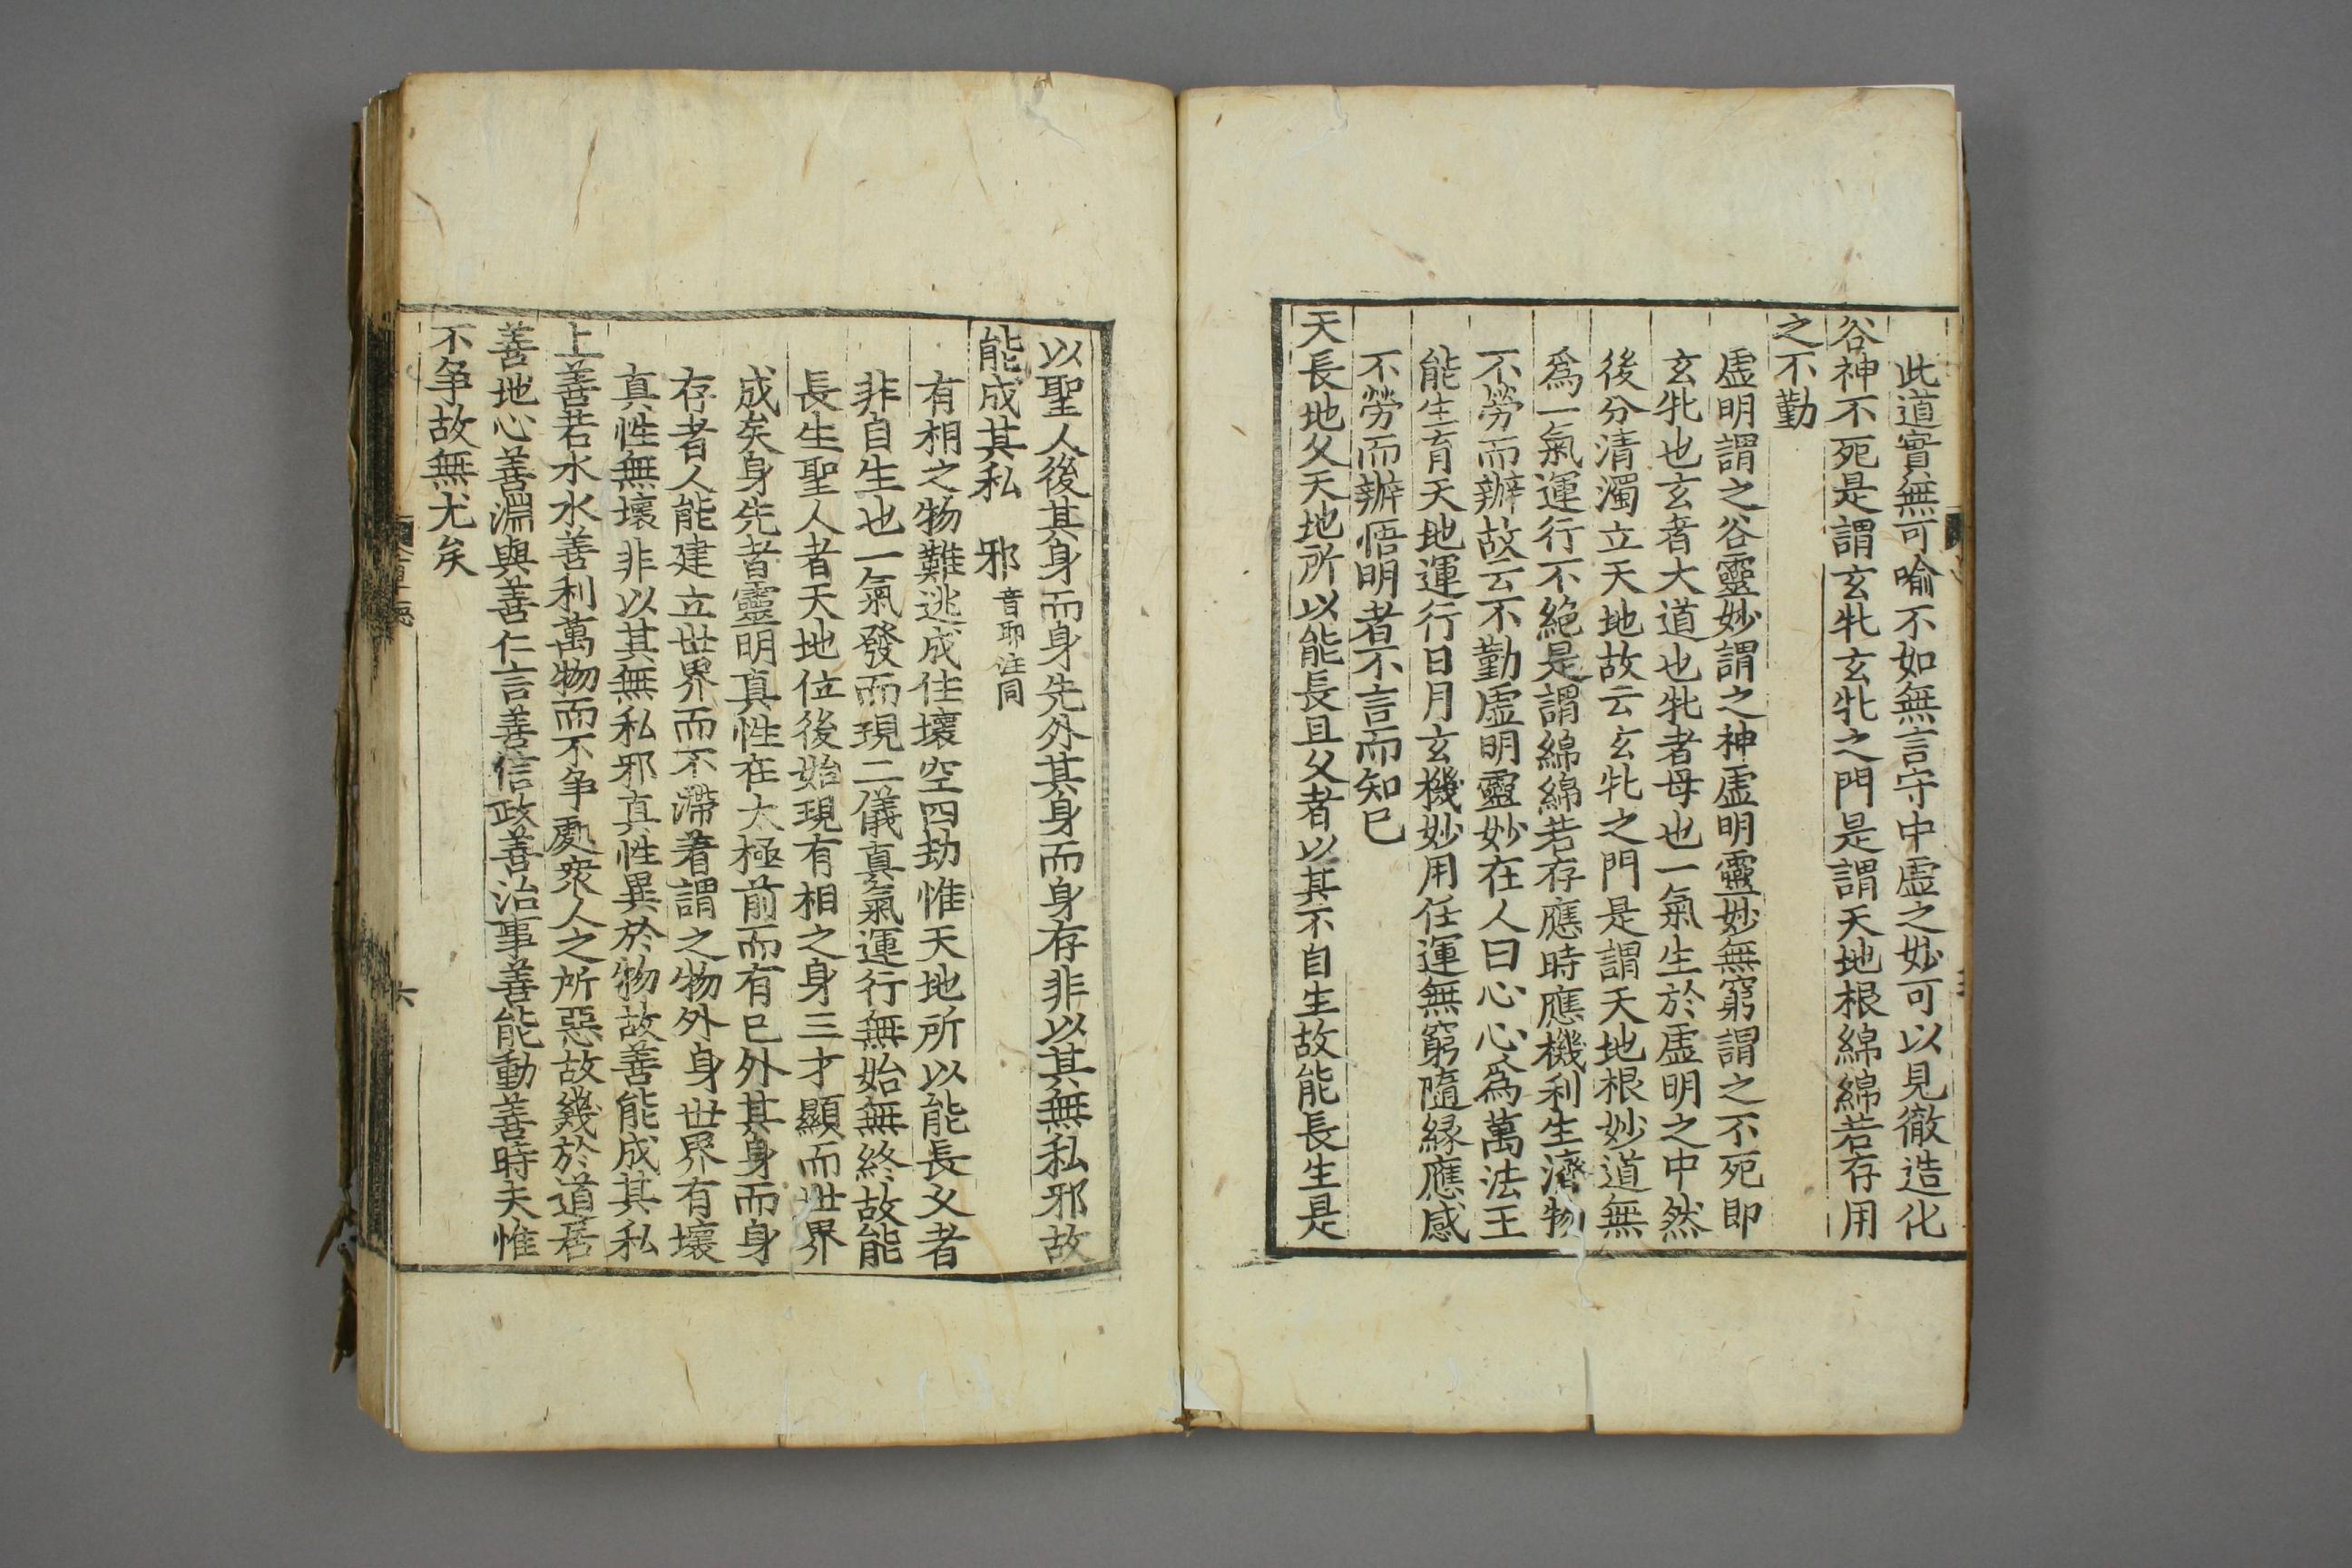 此道實無可喻不如無言守中虛之妙可以見徹造化
谷神不死是謂玄牝玄牝之門是謂天地根綿綿若存用
之不勤
虛明謂之谷靈妙謂之神虛明靈妙無窮謂之不死即
玄牝也玄者大道也牝者母也一氣生於虛明之中然
後分清濁立天地故云玄牝之門是謂天地根妙道無
爲一氣運行不絶是謂綿綿若存應時應機利生濟物
不勞而辦故云不勤虛明靈妙在人曰心心爲萬法王
能生育天地運行日月玄機妙用任運無窮隨緣應感
不勞而辦悟明者不言而知已
天長地久天地所以能長且久者以其不自生故能長生是
以聖人後其身而身先外其身而身存非以其無私邪故
能成其私 邪音耶注同
有相之物難逃成住壞空四劫惟天地所以能長久者
非自生也一氣發而現二儀真氣運行無始無終故能
長生聖人者天地位後始現有相之身三才顯而世界
成矣身先者靈明真性在太極前而有已外其身而身
存者人能建立世界而不滯著謂之物外身世界有壞
真性無壞非以其無私邪真性異於物故善能成其私
上善若水水善利萬物而不爭處衆人之所惡故幾於道居
善地心善淵與善仁言善信政善治事善能動善時夫惟
不爭故無尤矣
六